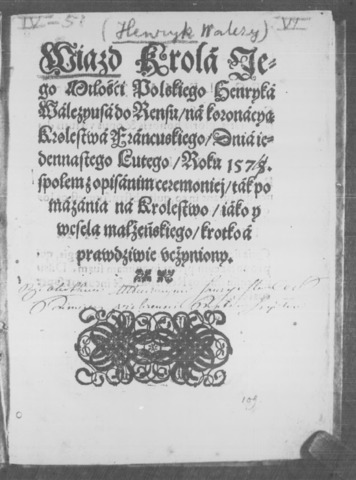 IV-5.
(Henryk Walezy)
VI
Wiazd Krolá Je-
go Miłości Polskiego Henryká
Wálezyusá do Rensu/ ná koronácyą
Krolestwá Fráncuskiego/ Dniá ie-
dennastego Lutego/ Roku 1575.
społem z opisánim ceremoniey/ ták po
mázánia ná Krolestwo/ iáko y
wesela małżeńskiego/ krotko á
prawdziwie vczyniony.
109